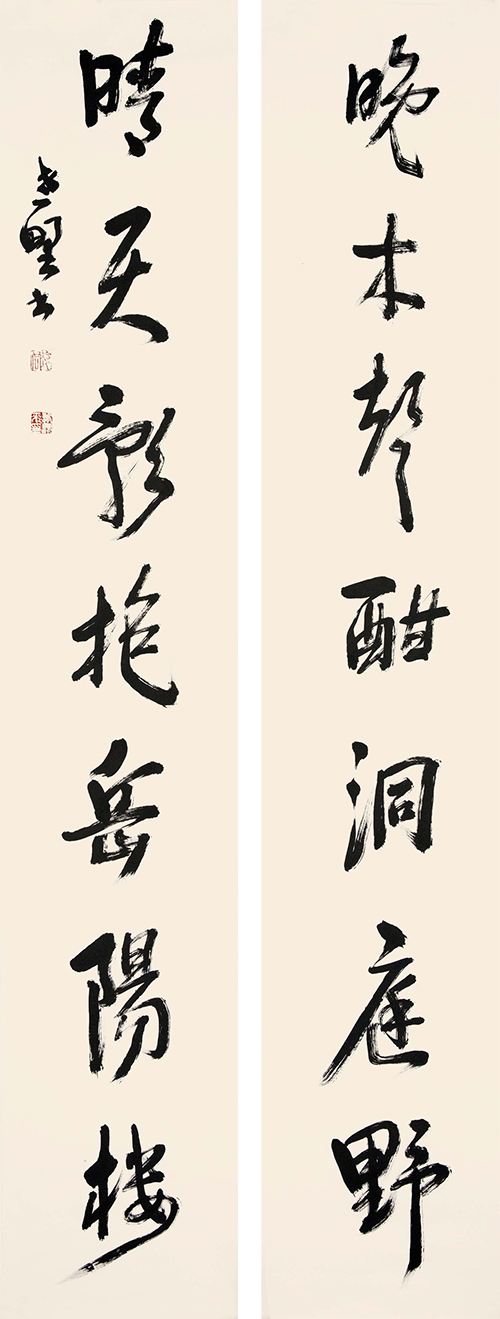 晚木聲酣洞庭野
晴天影抱岳陽楼